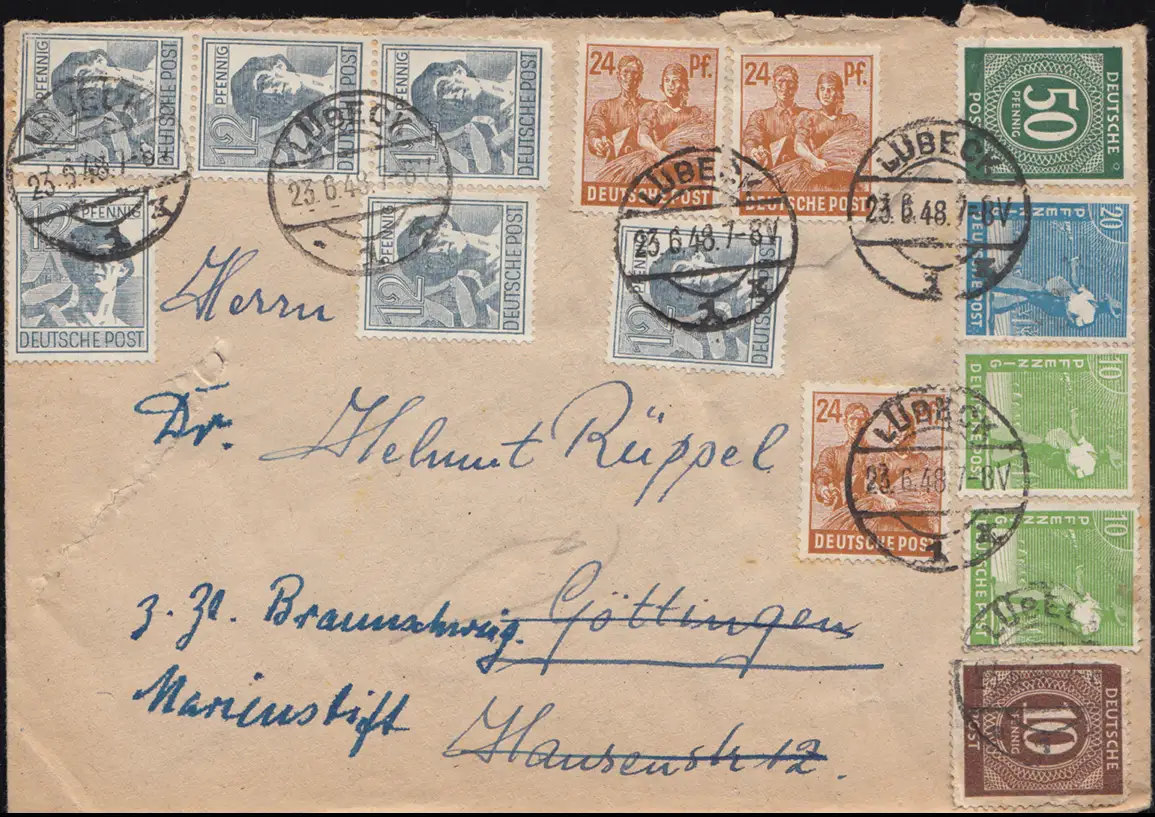 12 PFENNIG DEUTSCHE POST
12 PFENNIG DEUTSCHE POST
12 PFENNIG DEUTSCHE POST
24 Pf. DEUTSCHE POST
24 Pf. DEUTSCHE POST
50 PFENNIG DEUTSCHE POST
LÜBECK 23.6.48.7-8V
LÜBECK 23.6.48.7-8V
LÜBECK 23.6.48.7-8V
LÜBECK 23.6.48.7-8V
12 PFENNIG DEUTSCHE POST
12 PFENNIG DEUTSCHE POST
12 PFENNIG DEUTSCHE POST
20 PFENNIG DEUTSCHE POST
10 PFENNIG DEUTSCHE POST
24 DEUTSCHE POST
LÜBECK 23.6.48.7-8V
10 PFENNIG DEUTSCHE POST
LÜBECK
10 PFENNIG DEUTSCHE POST
Herrn
Dr. Helmut Rüppel
z. Zt. Braunschweig. Göttingen
Marienstift Hausenstr 12.